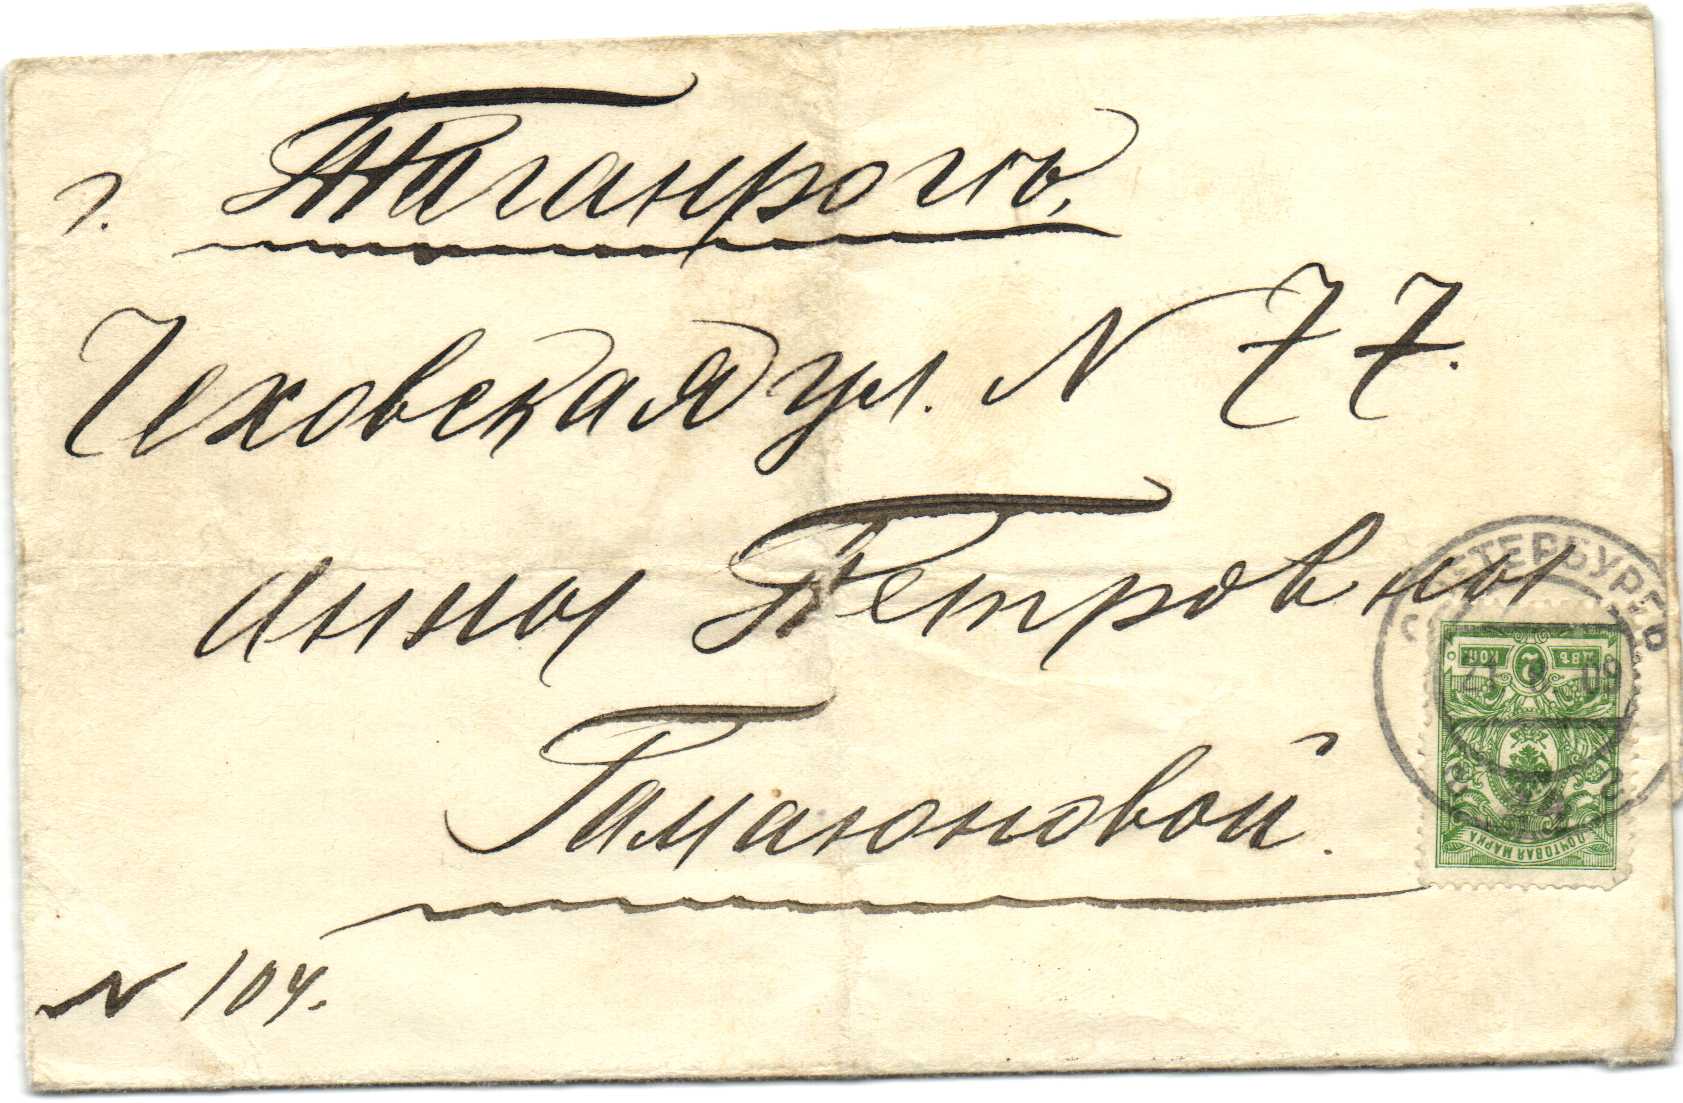 г. Таганрогъ,
Чеховская ул. N 77.
Анны Петровны
Гамаюновой.
N 104.
С.ПЕТЕРБУРГЪ
ДВѢ 2 КОП.
09
ПОЧТОВАЯ МАРКА